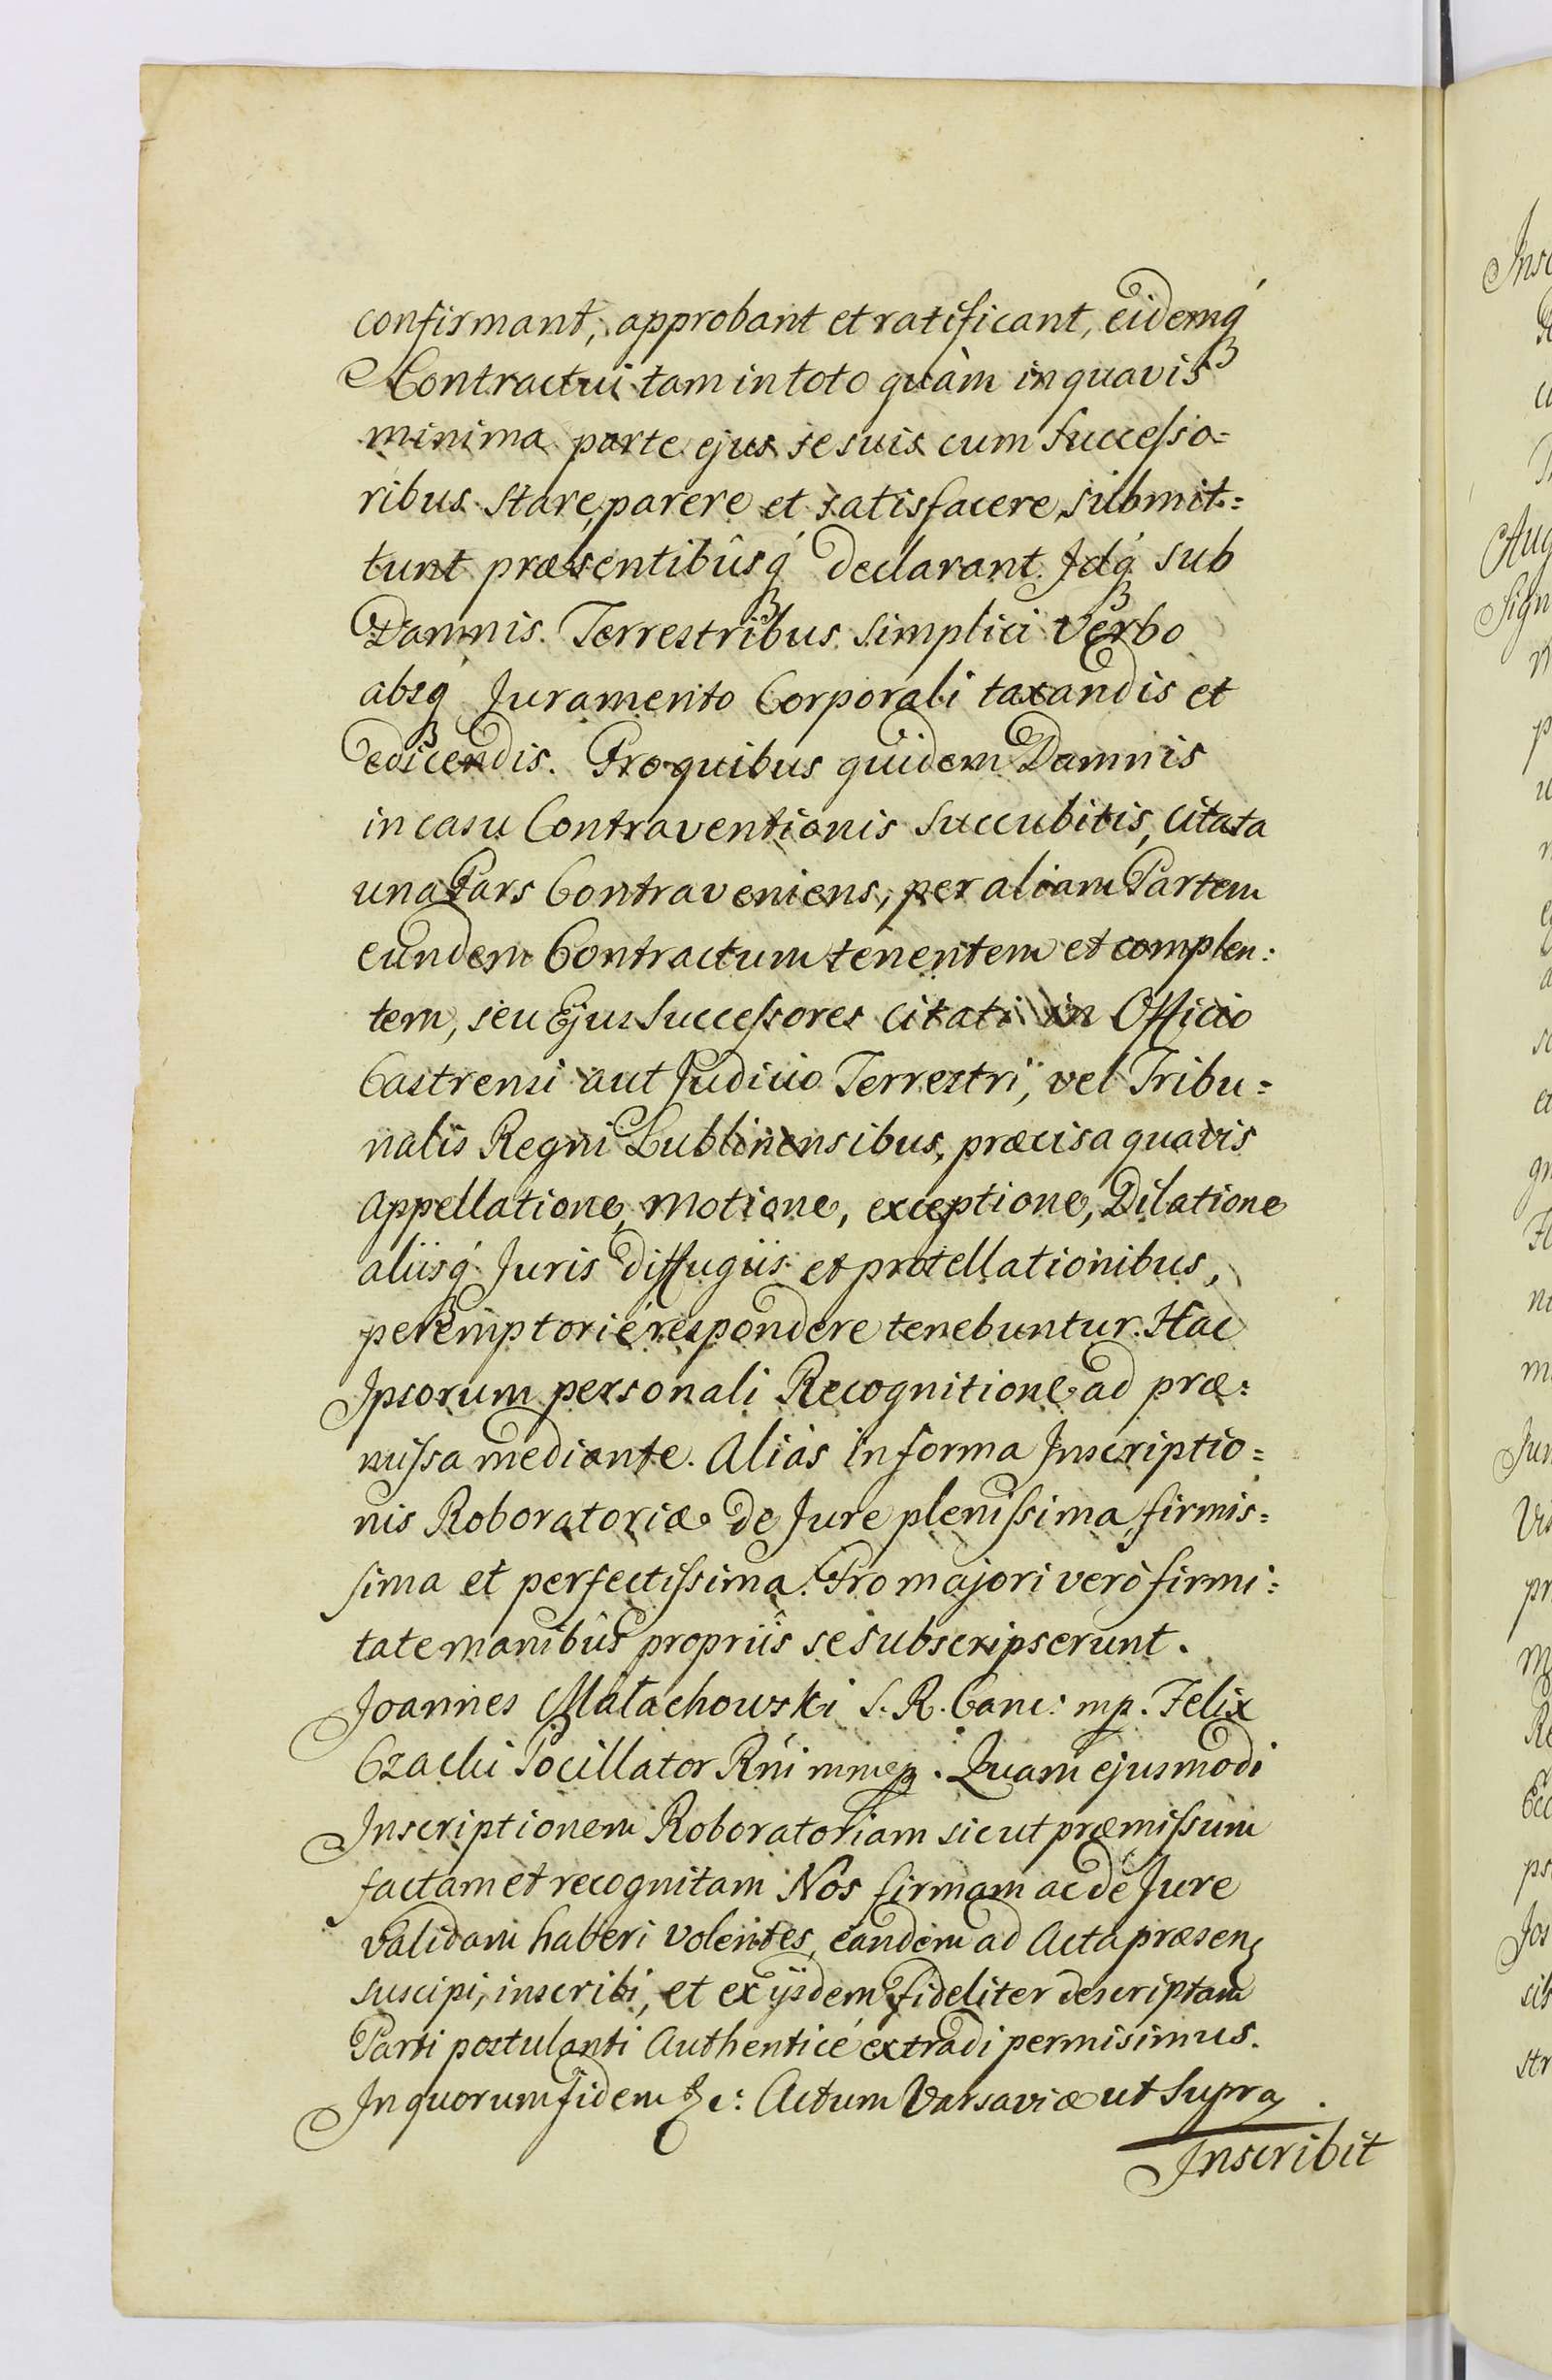 confirmant, approbant et ratificant, eidemq́
Contractui tam in toto quàm in quavis
minima parte ejus se suis cum Successo=
ribus stare, parere et satisfacere, submit=
tunt præsentibûsq́ declarant. Idq́ sub
Damnis Terrestribus simplici Verbo
absq́ Juramento Corporali taxandis et
edicendis. Pro quibus quidem Damnis
in casu Contraventionis succubitis, citata
una Pars Contraveniens, per aliam Partem
eundem Contractum tenentem et complen:
tem, seu Ejus Successores citati in Officio
Castrensi aut Judicio Terrestri, vel Tribu=
nalis Regni Lublinensibus, præcisa quavis
appellatione, motione, exceptione, Dilatione
aliisq́ Juris diffugiis et protellationibus,
peremptorié respondere tenebuntur. Hac
Ipsorum personali Recognitione ad præ=
missa mediante. Aliàs in forma Inscriptio=
nis Roboratoriæ de Jure plenissima, firmis=
sima et perfectissima. Pro majori verò firmi=
tate manibûs propriis se subscripserunt.
Joannes Małachowski S. R. Canc: mp. Felix
Czacki Pocillator Rńi mmp. Quam ejusmodi
Inscriptionem Roboratoriam sicut præmissum
factam et recognitam Nos firmam ac de Jure
validam haberi volentes, eandem ad Acta præsen
suscipi, inscribi, et ex ijsdem fideliter descriptam
Parti postulanti Authenticé extradi permisimus.
In quorum fidem &c: Actum Varsaviæ ut supra.
Inscribit